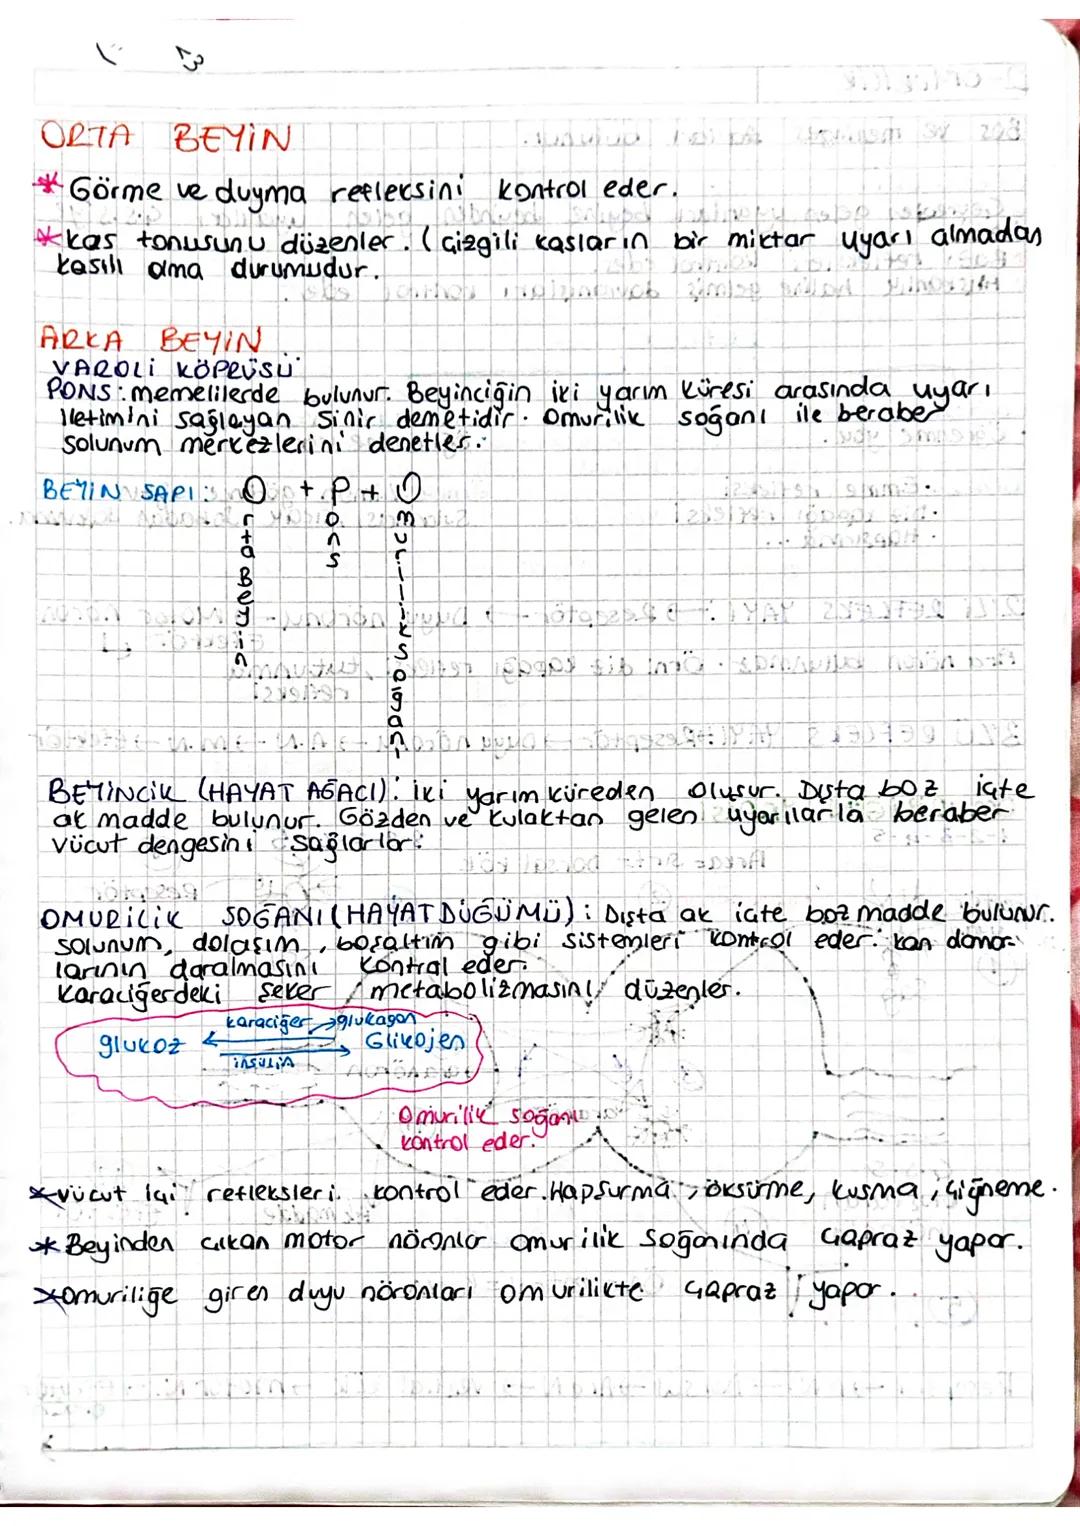 ORTA BEYİN
* Görme ve duyma refleksini kontrol eder.
* kas tonusunu düzenler. (Çizgili kasların bir miktar uyarı almadan
kasılı olma durumudur.
ARKA BEYİN
VAROLİ KÖPRÜSÜ
PONS: memelilerde bulunur. Beyinciğin iki yarım küresi arasında uyarı
iletimini sağlayan sinir demetidir. Omurilik soğanı ile beraber
solunum merkezlerini denetler.
BEYİN SAPI: Orta Beyin + Pons + Omurilik soğanı
BEYİNCİK (HAYAT AĞACI): İki yarım küreden oluşur. Dışta boz içte
ak madde bulunur. Gözden ve kulaktan gelen uyarılarla beraber
vücut dengesini sağlarlar.
OMURİLİK SOĞANI (HAYAT DÜĞÜMÜ): Dışta ak içte boz madde bulunur.
Solunum, dolaşım, boşaltım gibi sistemleri kontrol eder. kan damar-
larının daralmasını kontrol eder.
Karaciğerdeki şeker metabolizmasını düzenler.
karaciğer → glukagon
glukoz Glikojen
insulin
Omurilik soğanı
kontrol eder.
* vücut içi refleksleri kontrol eder. Hapşurma, öksürme, kusma, çiğneme.
* Beyinden çıkan motor nöronlar omurilik soğanında çapraz yapar.
* omuriliğe giren duyu nöronları omurilikte çapraz yapar.